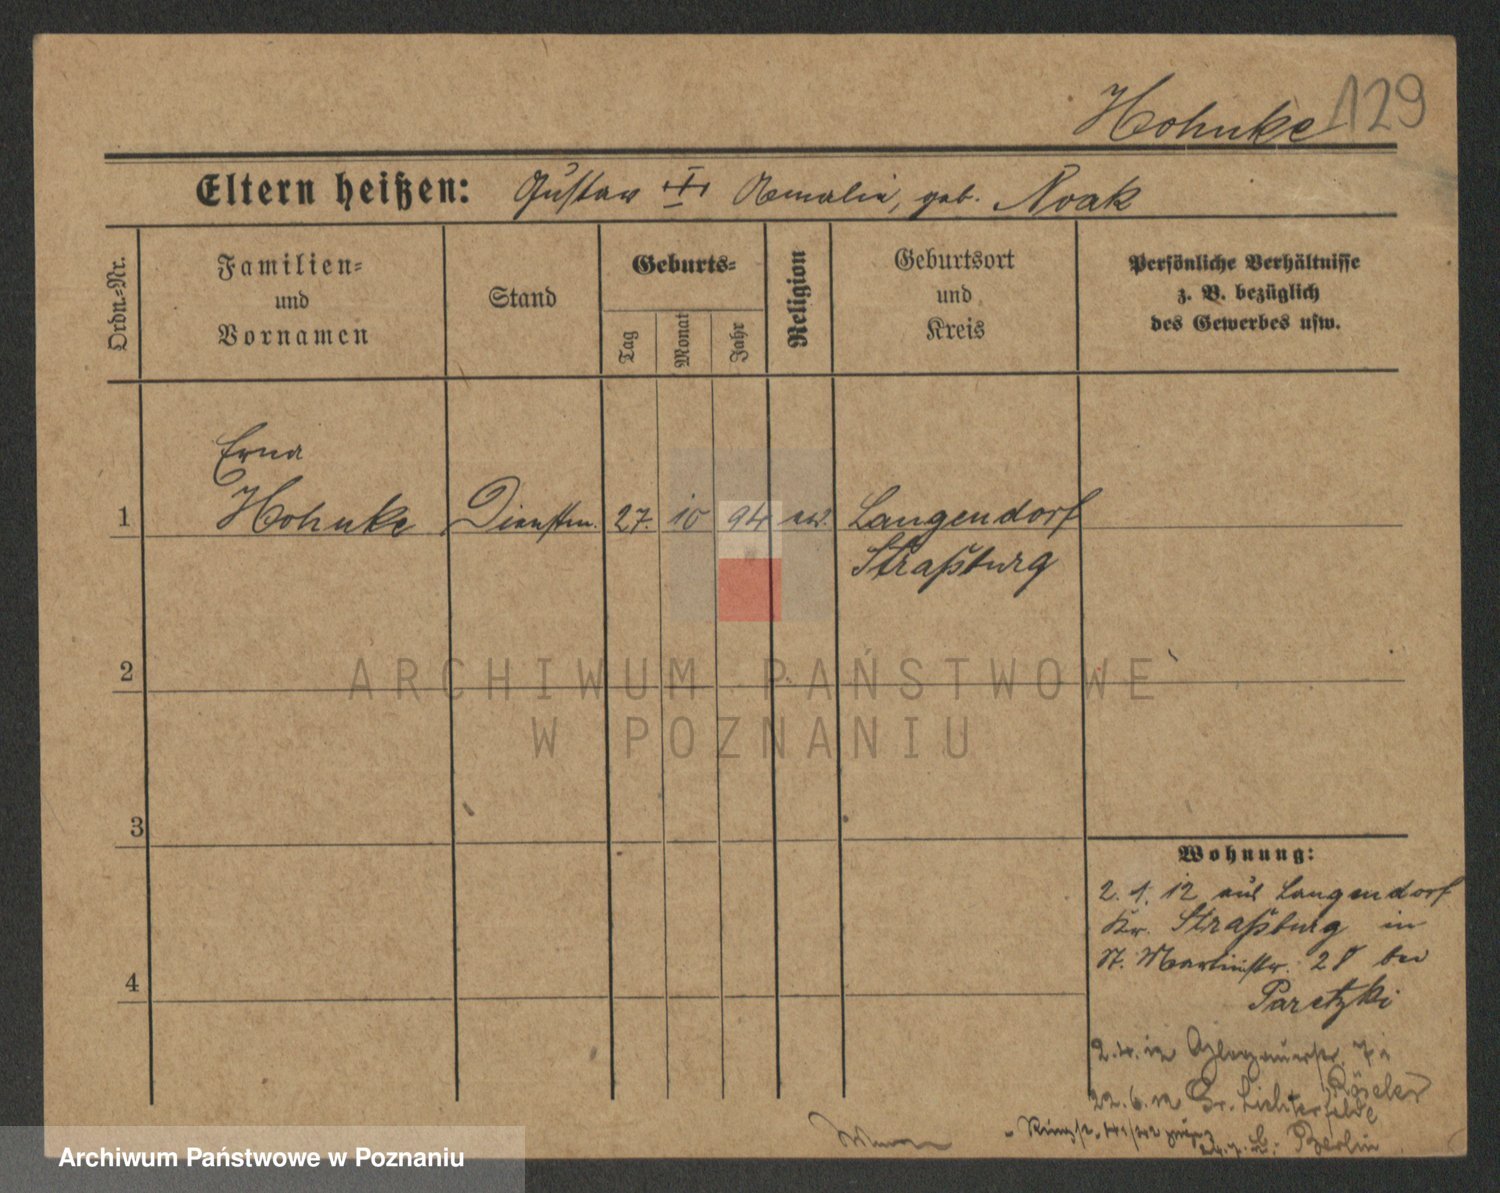 Hohnke 129
Eltern heißen: Gustav Amalie, geb. Noak
Ordn.-Nr.
Familien-
und
Vornamen
Stand
Geburts-
Tag
Monat
Jahr
Religion
Geburtsort
und
Kreis
Persönliche Verhältnisse
z. B. bezüglich
des Gewerbes usw.
Erna
1 Hohnke Dienstm. 27. 10 94 ev. Langendorf
Straßburg
2
ARCHIWUM PAŃSTWOWE
W POZNANIU
3
Wohnung:
2. 1. 12 aus Langendorf
Kr. Straßburg in
St. Martinstr. 28 bei
Paretzki
4
2. 4. 12 Glogauerstr.
Röseler
22. 6. 12 Gr. Lichterfelde
Berlin
Archiwum Państwowe w Poznaniu